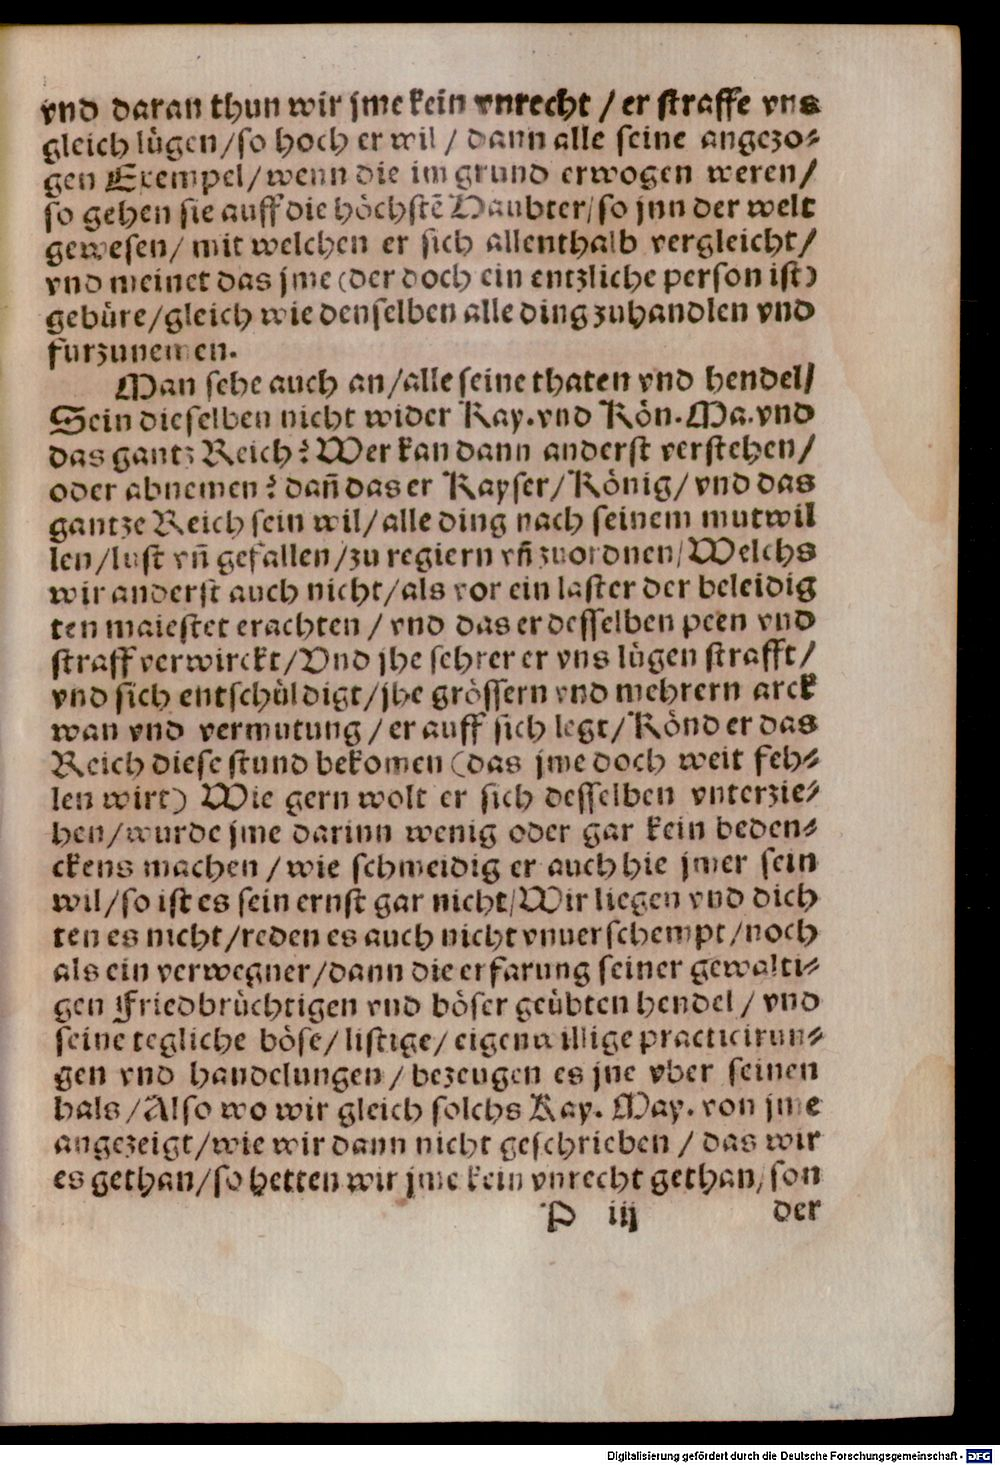 vnd daran thun wir jme kein vnrecht / er straffe vns
gleich lügen/so hoch er wil / dann alle seine angezo⸗
gen Exempel/wenn die im grund erwogen weren/
so gehen sie auff die höchstē Haubter/so jnn der welt
gewesen/ mit welchen er sich allenthalb vergleicht/
vnd meinet das jme (der doch ein entzliche person ist)
gebüre/gleich wie denselben alle ding zuhandlen vnd
furzunemen.
Man sehe auch an/alle seine thaten vnd hendel/
Sein dieselben nicht wider Kay. vnd Kön. Ma. vnd
das gantz Reich? Wer kan dann anderst verstehen/
oder abnemen? dañ das er Kayser/König/ vnd das
gantze Reich sein wil/alle ding nach seinem mutwil
len/lust vñ gefallen/zu regiern vñ zuordnen/Welchs
wir anderst auch nicht/als vor ein laster der beleidig
ten maiestet erachten / vnd das er desselben peen vnd
straff verwirckt/Vnd jhe sehrer er vns lügen strafft/
vnd sich entschüldigt/jhe grössern vnd mehrern arck
wan vnd vermutung / er auff sich legt/Könd er das
Reich diese stund bekomen (das jme doch weit feh⸗
len wirt) Wie gern wolt er sich desselben vnterzie⸗
hen/wurde jme darinn wenig oder gar kein beden⸗
ckens machen / wie schmeidig er auch hie jmer sein
wil/so ist es sein ernst gar nicht/Wir liegen vnd dich
ten es nicht/reden es auch nicht vnuerschempt/noch
als ein verwegner/dann die erfarung seiner gewalti⸗
gen Friedbrüchtigen vnd böser geübten hendel / vnd
seine tegliche böse/ listige/ eigenwillige practicirun⸗
gen vnd handelungen / bezeugen es jne vber seinen
hals/Also wo wir gleich solchs Kay. May. von jme
angezeigt/wie wir dann nicht geschrieben / das wir
es gethan/so hetten wir jme kein vnrecht gethan/son
P iij der
Digitalisierung gefördert durch die Deutsche Forschungsgemeinschaft - DFG